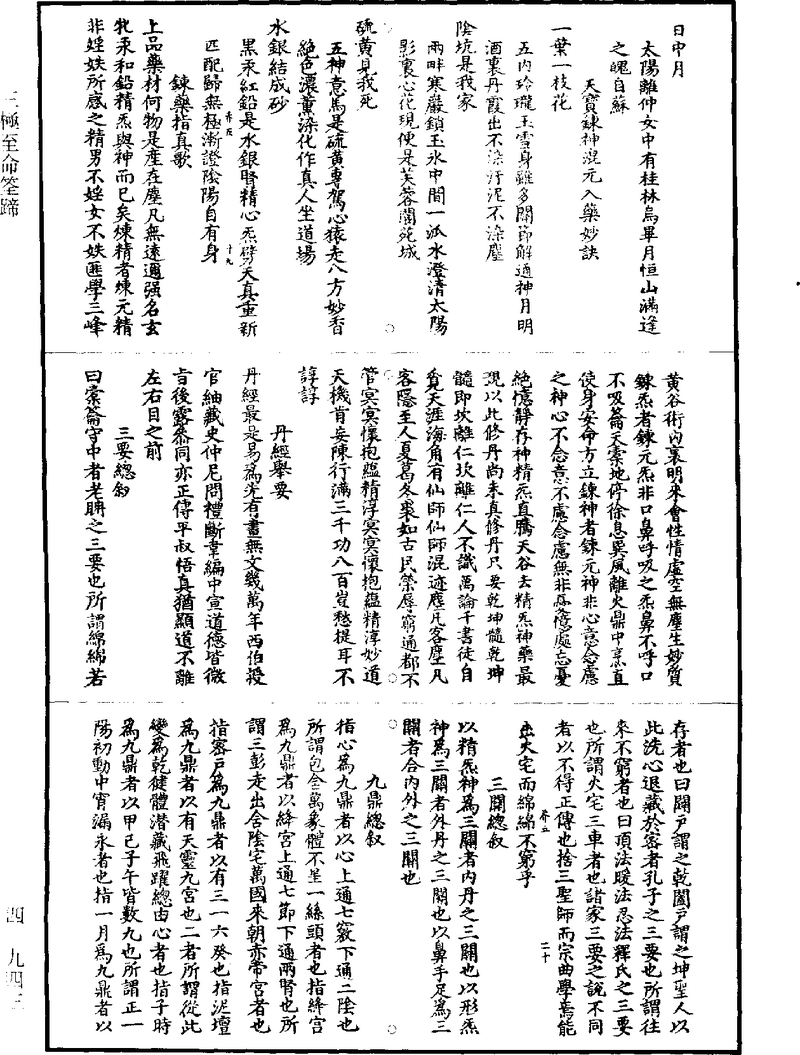 日中月
太陽離仲女中有桂林烏畢月恒山滿逢
之魄自蘇
天寶鍊神混元入藥妙訣
一葉一枝花
五内玲瓏玉雪身雖多關節解通神月明
酒裏丹霞出不染汙泥不染塵
陰坑是我家
兩畔寒巖鎖玉氷中間一派水澄清太陽
影裏心花現便是芙蓉閬苑城
硫黄見我死
五神意馬是硫黄專駕心猿走八方妙香
絶色濃薰染化作真人坐道場
水銀結成砂
黑汞紅鉛是水銀腎精心炁劈天真重新
匹配歸無極漸證陰陽自有身
鍊藥指真歌
上品藥材何物是産在塵凡無遠邇强名玄
牝汞和鉛精炁與神而已矣煉精者煉元精
非婬妷所感之精男不婬女不妷匪學三峰
黄谷術内裏明來會性情虛空無塵生妙質
鍊炁者鍊元炁非口鼻呼吸之炁鼻不呼口
不吸籥天橐地停徐息巽風離火鼎中烹直
使身安命方立鍊神者鍊元神非心意念慮
之神心不念意不慮念慮無非憂億處忘憂
絶憶靜存神精炁直騰天谷去精炁神藥最
親以此修丹尚未真修丹只要乾坤髓乾坤
髓即坎離仁坎離仁人不識萬論千書徒自
覓天涯海角有仙師仙師混迹塵凡客塵凡
客隱至人夏葛冬裘如古民榮辱窮通都不
管冥冥懷抱蘊精淳冥冥懷抱蘊精淳妙道
天機肯妄陳行滿三千功八百豈愁提耳不
諄諄
丹經舉要
丹經最是易爲先有畫無文幾萬年西伯授
官紬藏史仲尼問禮斷韋編中宣道德皆微
言後露叅同亦正傳平叔悟真猶顯道不離
左右目之前
三要總叙
曰橐籥守中者老聃之三要也所謂綿綿若
存者也曰闢戸謂之乾闔戸謂之坤聖人以
此洗心退藏於密者孔子之三要也所謂往
來不窮者也曰頂法暖法忍法釋氏之三要
也所謂火宅三車者也諸家三要之說不同
者以不得正傳也捨三聖師而宗曲學焉能
出火宅而綿綿不窮乎
三關總叙
以精炁神爲三關者内丹之三關也以形炁
神爲三關者外丹之三關也以鼻手足爲三
關者合内外之三關也
九鼎總叙
指心爲九鼎者以心上通七竅下通二陰也
所謂包含萬象體不罣一絲頭者也指絳宫
爲九鼎者以絳宫上通七節下通兩腎也所
謂三彭走出含陰宅萬國來朝赤帝宫者也
指密戸爲九鼎者以有三一六癸也指泥壇
爲九鼎者以有天靈九宫也二者所謂從此
變爲乾健體潜藏飛躍總由心者也指子時
爲九鼎者以甲己子午皆數九也所謂正一
陽初動中宵漏永者也指一月爲九鼎者以
三極至命筌蹄
四 九四三